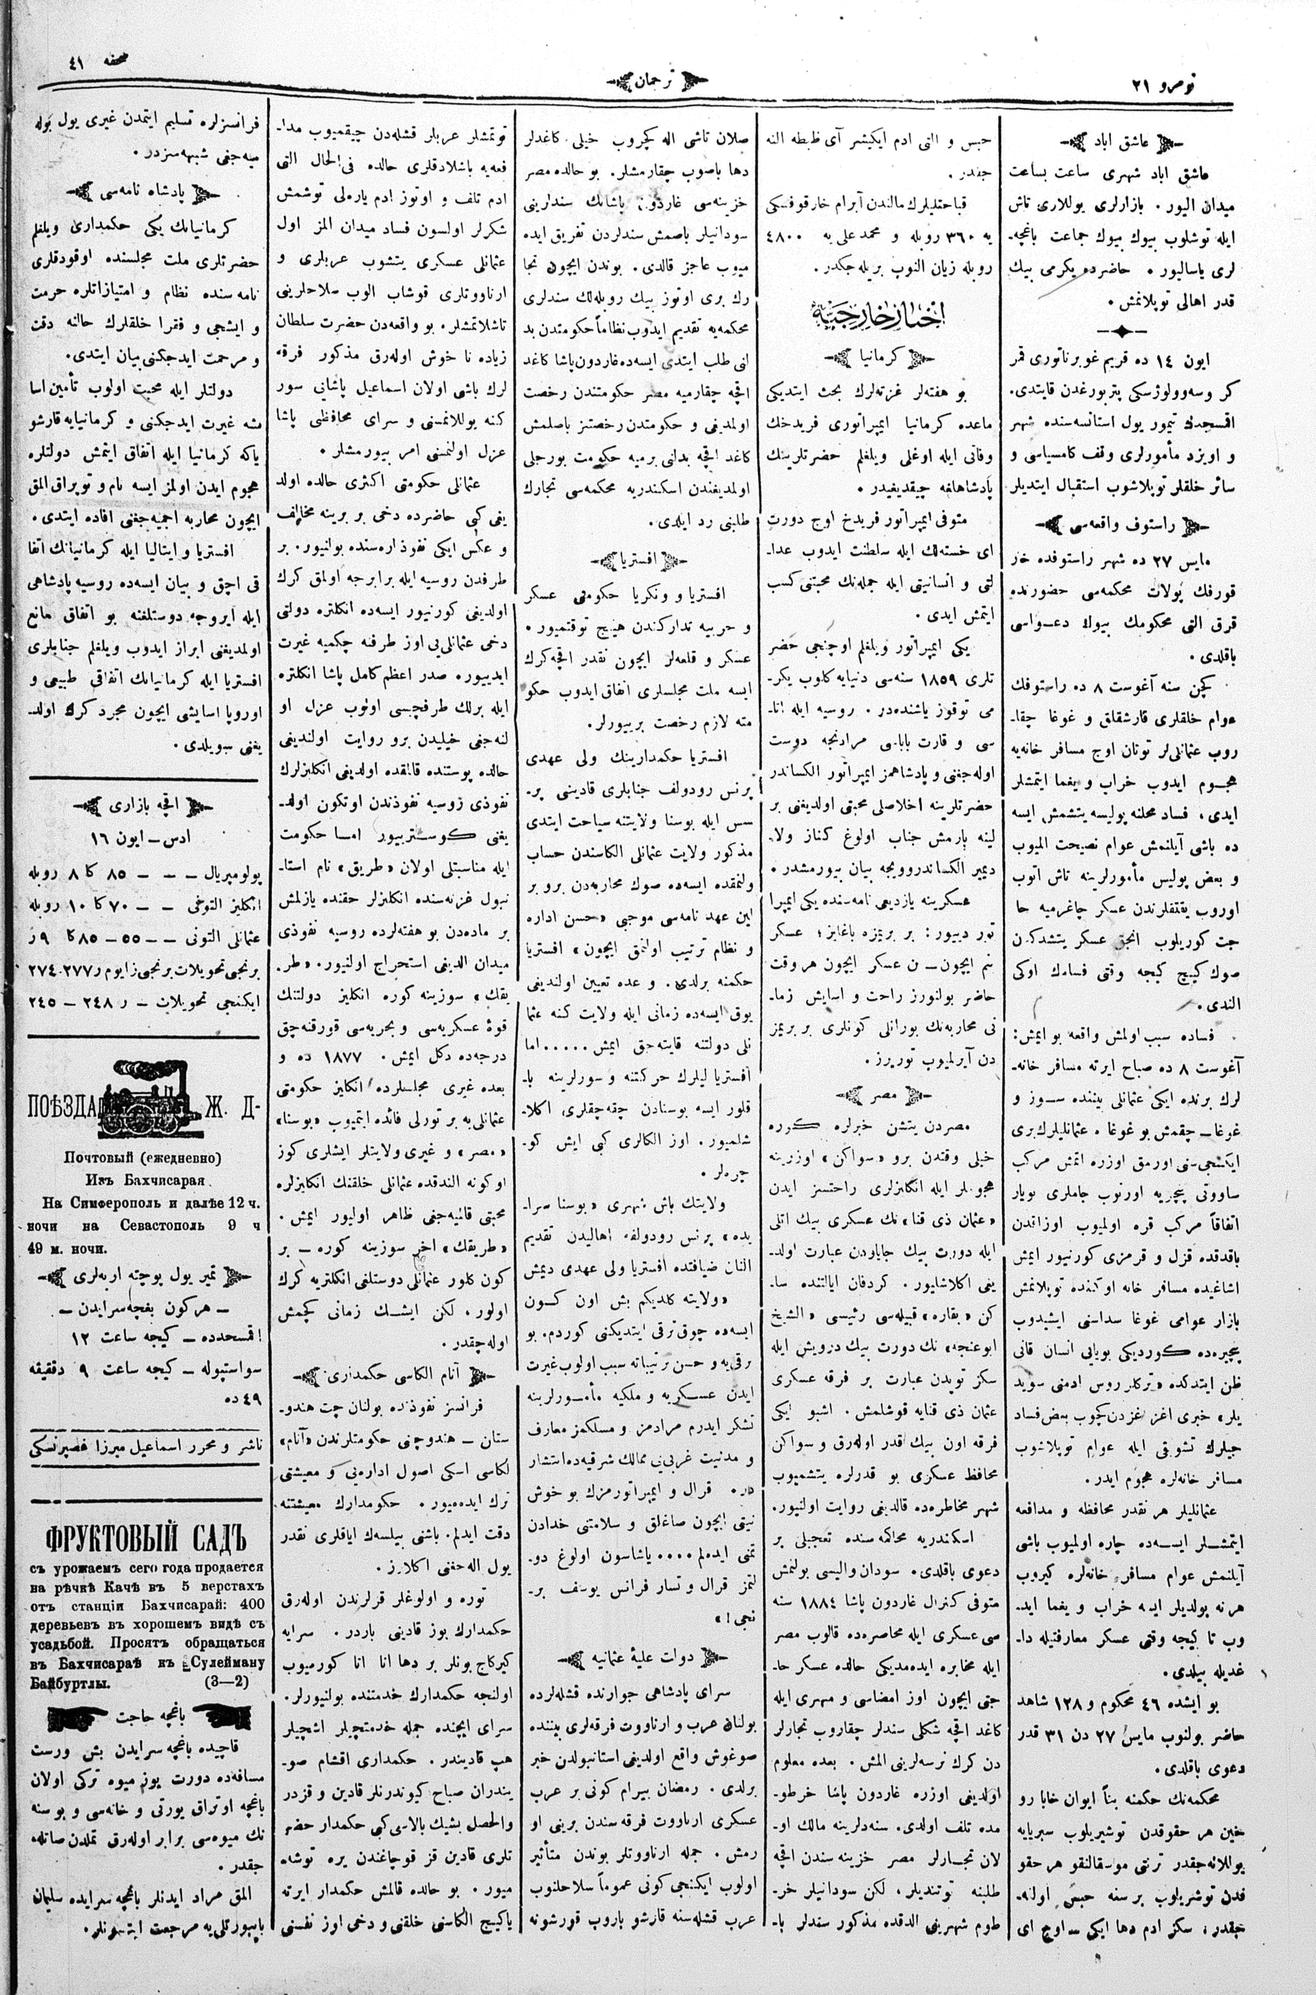 نومرو ٢١
ترجمان
صحفه ٤١
عاشق اباد
عاشق اباد شهری ساعت بساعت
میدان الیور . بازارلری یوللاری تاش
ایله توشلوب بیوك بیوك جماعت باغچه‌
لری یاسالیور . حاضرده یكرمی بیك
قدر اهالی توپلانمش .
ایون ١٤ ده قریم غوبرناتوری قمر
كر وسه‌وولوژسكی پتربورغدن قایتدی .
اقمسجدك تیمور یول استانسه‌سنده شهر
و اویزد مأمورلری وقف كامسیاسی و
سائر خلقلر توپلاشوب استقبال ایتدیلر
راستوف واقعه‌سی
مایس ٢٧ ده شهر راستوفده خار
قورفك پولات محكمه‌سی حضورنده
قرق التی محكومك بیوك دعواسی
باقلدی .
كچن سنه آغوست ٨ ده راستوفك
عوام خلقلری قارشقلق و غوغا چقا‌
روب عثمانلی‌لر توتان اوج مسافر خانه‌یه
هجوم ایدوب خراب و یغما ایتمشلر
ایدی ، فساد محلنه پولیسه یتشمش ایسه
ده باشی آیلنمش عوام نصیحت المیوب
و بعض پولیس مأمورلرینه تاش اتوب
اوروب یقتقلرندن عسكر چاغرمیه حا
جت كوریلوب انجق عسكر یتشدكدن
صوك كیچ كیجه وقتی فسادك اوكی
الندی .
فساده سبب اولمش واقعه بو ایمش :
آغوست ٨ ده صباح ایرته مسافر خانه‌
لرك برنده ایكی عثمانلی بیننده سوز و
غوغا ـ چقمش بو غوغا . عثمانلیلرك بری
ایكنجی‌نی اورمق اوزره اتمش مركب
ساووتی پنجریه اورنوب جاملری بویار
اتفاقاً مركب قره اولمیوب اوزاقدن
باقدقده قزل و قرمزی كورنیور ایمش
اشاغیده مسافر خانه اوكنده توپلانمش
بازار عوامی غوغا سداسنی ایشیدوب
پنجیره‌ده كوردیكی بویایی انسان قانی
ظن ایتدكده «تركلر روس ادمنی سوید
یلر» خبری اغز غزدن كچوب بعض فساد
جیلرك تشویقی ایله عوام توپلاشوب
مسافر خانه‌لره هجوم ایدر .
عثمانلیلر هر نقدر محافظه و مدافعه
ایتمشلر ایسه‌ده چاره اولمیوب باشی
آیلنمش عوام مسافر خانه‌لره كیروب
هر نه بولدیلر ایسه خراب و یغما اید‌
وب تا كیجه وقتی عسكر معارفتیله دا‌
غدیله بیلدی .
بو ایشده ٤٦ محكوم و ١٢٨ شاهد
حاضر بولنوب مایس ٢٧ دن ٣١ قدر
دعوی باقلدی .
محكمه‌نك حكمنه بناً ایوان خابا رو
خین هر حقوقدن توشیریلوب سبریایه
یوللانه‌جقدر ترنتی موسقالنقو هر حقو
قدن توشریلوب بر سنه حبس اولنه‌
جقدر ، سكز ادم دها ایكی ـ اوچ ای
حبس و التی ادم ایكیشر آی ظبطه النه
جقدر .
قباحتلیلرك مالندن آبرام خارقوفسكی
یه ٣٦٠ روبله و محمد علی یه ٤٨٠٠
روبله زیان النوب بریله‌جكدر .
اخبار خارجیه
كرمانیا
بو هفته‌لر غزته‌لرك بحث ایتدیكی
ماعده كرمانیا ایمپراتوری فریدخك
وفاتی ایله اوغلی ویلغلم حضرتلرینك
پادشاهلغه چیقدیغیدر .
متوفی ایمپراتور فریدخ اوچ دورت
ای خسته‌لك ایله سلطنت ایدوب عدا‌
لتی و انسانیتی ایله جمله‌نك محبتنی كسب
ایتمش ایدی .
یكی ایمپراتور ویلغلم اوچنجی حضر
تلری ١٨٥٩ سنه‌سی دنیایه كلوب یكر‌
می توقوز یاشنده‌در . روسیه ایله انا‌
سی و قارت بابامی مرادنجه دوست
اوله‌جغنی و پادشاهمز ایمپراتور الكساندر
حضرتلرینه اخلاصلی محبتی اولدیغنی بر
لینه بارمش جناب اولوغ كناز ولا‌
دیمیر الكساندروویچه بیان بیورمشدر .
عسكرینه یازدیغی نامه‌سنده یكی ایمپرا
تور دییور : بر بریمزه باغلایز ؛ عسكر
بنم ایچون ـ بن عسكر ایچون هر وقت
حاضر بولنورز راحت و اسایش زما‌
نی محاربه‌نك بورانلی كونلری بر بریمز
دن آیرلمیوب توریرز .
مصر
مصردن یتشن خبرلره كوره
خیلی وقتدن برو «سواكن» اوزرینه
هجوملر ایله انكلیزلری راحتسز ایدن
«عثمان ذی قنا» نك عسكری بیك اتلی
ایله دورت بیك جایاودن عبارت اولد‌
یغی اكلاشلیور . كردفان ایالتنده سا‌
كن «بقاره» قبیله‌سی رئیسی «الشیخ
ابوعنجه» نك دورت بیك درویش ایله
سكز توپدن عبارت بر فرقه عسكری
عثمان ذی قنایه قوشلمش . اشبو ایكی
فرقه اون بیك قدر اوله‌رق و سواكن
محافظ عسكری بو قدرلره یتشمیوب
شهر مخاطره‌ده قالدیغی روایت اولنیور .
اسكندریه محاكمه‌سنده تعجیلی بر
دعوی باقلدی . سودان والیسی بولنمش
متوفی كنرال غاردون پاشا ١٨٨٤ سنه
سی عسكری ایله محاصره‌ده قالوب مصر
ایله مخابره ایده‌مدیكی حالده عسكر خا‌
جتی ایچون اوز امضاسی و مهری ایله
كاغد اقچه شكلی سندلر چقاروب تجارلر
دن كرك نرسه‌لرینی المش . بعده معلوم
اولدیغی اوزره غاردون پاشا خرطو‌
مده تلف اولدی . سنه‌دلرینه مالك او‌
لان تجارلر مصر خزینه‌سندن اقچه
طلبنه توتندیلر ، لكن سودانیلر خر‌
طوم شهرینی الدقده مذكور سندلر با‌
صلان تاشی اله كچروب خیلی كاغدلر
دها باصوب چقارمشلر . بو حالده مصر
خزینه‌سی غاردون پاشانك سندلرینی
سودانیلر باصمش سندلردن تفریق ایده
میوب عاجز قالدی . بوندن ایچون تجا
رك بری اوتوز بیك روبله‌لك سندلری
محكمه‌یه تقدیم ایدوب نظاماً حكومتدن بد
انی طلب ایتدی ایسه‌ده غاردون پاشا كاغد
اقچه چقارمیه مصر حكومتندن رخصت
اولمدیغی و حكومتدن رخصتسز باصلمش
كاغد اقچه بدلنی برمیه حكومت بورجلی
اولمدیغندن اسكندریه محكمه‌سی تجارك
طلبنی رد ایلدی .
افستریا
افستریا و ونكریا حكومتی عسكر
و حربیه تداركندن هیچ توقتمیور .
عسكر و قلعه‌لر ایچون نقدر اقچه كرك
ایسه ملت مجلسلری اتفاق ایدوب حكو
مته لازم رخصت بریبورلر .
افستریا حكمدارینك ولی عهدی
پرنس رودولف جنابلری قادینی پر‌
سس ایله بوسنا ولایتنه سیاحت ایتدی
مذكور ولایت عثمانلی الكاسندن حساب
ولنمقده ایسه‌ده صوك محاربه‌دن برو بر
لین عهد نامه‌سی موجبی «حسن اداره
و نظام ترتیب اولنمق ایچون» افستریا
حكمنه برلدی . و عده تعیین اولندیغی
یوق ایسه‌ده زمانی ایله ولایت كنه عثما
نلی دولتنه قایته‌جق ایمش ..... اما
افستریا لیلرك حركتنه و سوزلرینه با‌
قلور ایسه بوسنادن چقه‌جقلری اكلا‌
شلمیور . اوز الكالری كبی ایش كو‌
چره‌لر .
ولایتك باش شهری «بوسنا سرا‌
یده» پرنس رودولفه اهالیدن تقدیم
النان ضیافتده افستریا ولی عهدی دیمش
«ولایته كلدیكم بش اون كون
ایسه‌ده چوق ترقی ایتدیكنی كوردم . بو
ترقی‌یه و حسن ترتیباته سبب اولوب غیرت
ایدن عسكریه و ملكیه مأمورلرینه
تشكر ایدرم مرادمز و مسلكمز معارف
و مدنیت غربی‌یی ممالك شرقیه‌ده انتشار
در . قرال و ایمپراتورمزك بو خوش
نیتی ایچون صاغلق و سلامتنی خدادن
تمنی ایده‌لم .... یاشاسون اولوغ دو‌
لتمز قرال و تسار فرانس یوسف بر‌
نجی !»
دولت علیهٔ عثمانیه
سرای پادشاهی جوارنده قشله‌لرده
بولنان عرب و ارناووت فرقه‌لری بیننده
صوغوش واقع اولدیغی استانبولدن خبر
برلدی . رمضان بیرام كونی بر عرب
عسكری ارناووت فرقه سندن برینی او
رمش . جمله ارناووتلر بوندن متأثیر
اولوب ایكنجی كونی عموماً سلاحلنوب
عرب قشله‌سنه قارشو باروب قورشونه
توتمشلر عربلر قشله‌دن چیقمیوب مدا‌
فعه‌یه باشلادقلری حالده فی‌الحال التی
ادم تلف و اوتوز ادم یاره‌لی توشمش
شكرلر اولسون فساد میدان المز اول
عثمانلی عسكری یتشوب عربلری و
ارناووتلری قوشاب الوب سلاحلرینی
تاشلاتمشلر . بو واقعه‌دن حضرت سلطان
زیاده نا خوش اوله‌رق مذكور فرقه
لرك باشی اولان اسماعیل پاشانی سور
كنه یوللانمسنی و سرای محافظی پاشا
عزل اولنمسنی امر بیورمشلر .
عثمانلی حكومتی اكثری حالده اولد
یغی كبی حاضرده دخی بر برینه مخالف
و عكس ایكی نفوذ اره‌سنده بولنیور . بر
طرفدن روسیه ایله برابرجه اولمق كرك
اولدیغی كورنیور ایسه‌ده انكلتره دولتی
دخی عثمانلی‌یی اوز طرفنه چكمیه غیرت
ایدییور . صدر اعظم كامل پاشا انكلتره
ایله برلك طرفچیسی اولوب عزل او
لنه‌جغی خیلیدن برو روایت اولندیغی
حالده پوستنده قالمقده اولدیغی انكلیزلرك
نفوذی روسیه نفوذندن اوتكون اولد‌
یغنی كوستریبور اما حكومت
ایله مناسبتلی اولان «طریق» نام استا‌
نبول غزته‌سنده انكلیزلر حقنده یازلمش
بر ماده‌دن بو هفته‌لرده روسیه نفوذی
میدان الدیغی استحراج اولنیور . «طر‌
یقك» سوزینه كوره انكلیز دولتنك
قوهٔ عسكریه‌سی و بحریه‌سی قورقنه‌جق
درجه‌ده دكل ایمش . ١٨٧٧ ده و
بعده غیری مجلسلرده انكلیز حكومتی
عثمانلی یه بر تورلی فائده ایتمیوب «بوسنا»
«مصر» و غیری ولایتلر ایشلری كوز
اوكونه الندقده عثمانلی خلقنك انكلیزلره
محبتی قالمیه‌جغی ظاهر اولیور ایمش .
«طریقك» اخر سوزینه كوره ـ بر
كون كلور عثمانلی دوستلغی انكلتریه كرك
اولور . لكن ایشك زمانی كچمش
اوله‌جقدر .
آنام الكاسی حكمداری
فرانسز نفوذنده بولنان چت هندو‌
ستان ـ هندوچنی حكومتلرندن «آنام»
لكاسی اسكی اصول اداره‌یی و معیشتی
ترك ایده‌میور . حكومدارك معیشتنه
دقت ایدلم . باشنی بیلسه‌ك ایاقلری نقدر
یول اله‌جغنی اكلارز .
توره و اولوغلر قزلرندن اوله‌رق
حكمدارك یوز قادینی باردر . سرایه
كیركاچ بونلر بر دها انا اتا كورمیوب
اولنجه حكمدارك خدمتنده بولنیورلر .
سرای ایچنده جمله خدمتچیلر اشچیلر
هپ قادیندر . حكمداری اقشام صو‌
یندران صباح كیوندرنلر قادین و قزدر
والحصل بشیك بالاسی كبی حكمدار حضر
تلری قادین قز قوچاغندن یره توشه
میور . بو حالده قالمش حكمدار ایرته
یاكیچ الكاسنی خلقنی و دخی اوز نفسنی
فرانسزلره تسلیم ایتمدن غیری یول بوله
میه‌جغی شبهه‌سزدر .
پادشاه نامه‌سی
كرمانیانك یكی حكمداری ویلغلم
حضرتلری ملت مجلسنده اوقودقلری
نامه سنده نظام و امتیازاتلره حرمت
و ایشجی و فقرا خلقلرك حالنه دقت
و مرحمت ایدجكنی بیان ایتدی .
دولتلر ایله محبت اولوب تأمین اسا
مشه غیرت ایدجكنی و كرمانیایه قارشو
یاكه كرمانیا ایله اتفاق ایتمش دولتلره
هجوم ایدن اولمز ایسه نام و توپراق المق
ایچون محاربه اچمیه‌جغنی افاده ایتدی .
افستریا و ایتالیا ایله كرمانیانك اتفا
قی اچق و بیان ایسه‌ده روسیه پادشاهی
ایله ایروجه دوستلغنه بو اتفاق مانع
اولمدیغنی ابراز ایدوب ویلغلم جنابلری
افستریا ایله كرمانیانك اتفاقی طبیعی و
اوروپا اسایشی ایچون مجرد كرك اولد‌
یغنی سویلدی .
اقچه بازاری
ادس ـ ایون ١٦
پولومپریال ـ ـ ـ ٨٥ كا ٨ روبله
انكلیز التونی ـ ـ ٧٠ كا ١٠ روبله
عثمانلی التونی ـ ـ ٥٥ ـ ٨٥ كا ٩ ر
برنجی تحویلات برنجی زایوم ر ٢٧٧ـ٢٧٤
ایكنجی تحویلات ـ ر ٢٤٨ ـ ٢٤٥
ПОѢЗДА Ж. Д-
Почтовый (ежедневно)
Изъ Бахчисарая
На Симферополь и далѣе 12 ч.
ночи на Севастополь 9 ч
49 м. ночи.
تمیر یول پوچته اربه‌لری
ـ هركون بغچه سرایدن ـ
اقمسجدده ـ كیجه ساعت ١٢
سواستپوله ـ كیجه ساعت ٩ دقیقه
٤٩ ده
ناشر و محرر اسماعیل میرزا غصپرنسكی
ФРУКТОВЫЙ САДЪ
съ урожаемъ сего года продается
на рѣчкѣ Качѣ въ 5 верстахъ
отъ станціи Бахчисарай: 400
деревьевъ въ хорошемъ видѣ съ
усадьбой. Просятъ обращаться
въ Бахчисараѣ къ Сулейману
Байбуртлы. (3—2)
باغچه حاجت
قاچیده باغچه سرایدن بش ورست
مسافه‌ده دورت یوز میوه تركی اولان
باغچه اوتراق یورتی و خانه‌سی و بو سنه
نك میوه‌سی برابر اوله‌رق تملدن صاتله‌
جقدر .
المق مراد ایدنلر باغچه سرایده سلیمان
بایبورتلی‌یه مرجعت ایتسونلر .